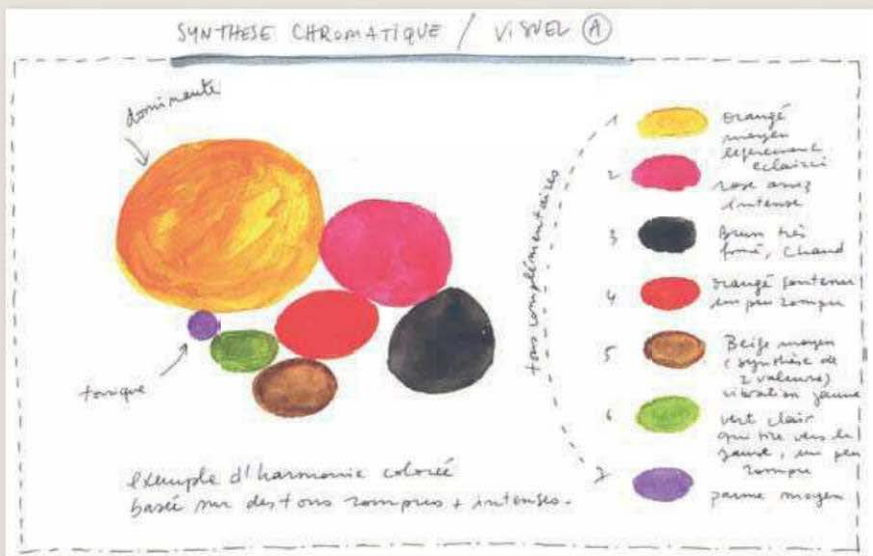 SYNTHESE CHROMATIQUE / VISUEL A
dominante
tonique
exemple d'harmonie colorée
basée sur des tons rompus + intenses.
tons complémentaires
1
orangé
moyen
légèrement
éclairci
2
rose assez
intense
3
Brun très
foncé, chaud
4
orangé soutenu
un peu rompu
5
Beige moyen
(synthèse de
2 valeurs)
vibration jaune
6
vert clair
qui tire vers le
jaune, un peu
rompu
7
parme moyen